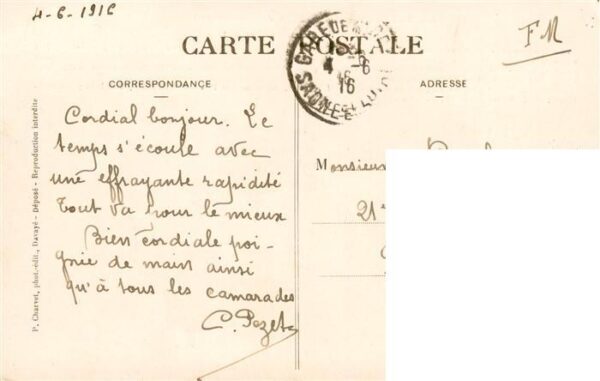 4-6-1916
FM
CARTE POSTALE
GARE DE
4 -6
16
SAONE-ET-LOIRE
CORRESPONDANCE
ADRESSE
Cordial bonjour. Le
temps s'écoule avec
une effrayante rapidité
Tout va pour le mieux
Bien cordiale poi-
gnée de main ainsi
qu'à tous les camarades
C. Pezet
Monsieur
21
P. Charvet, phot.-édit., Davayé - Déposé - Reproduction interdite